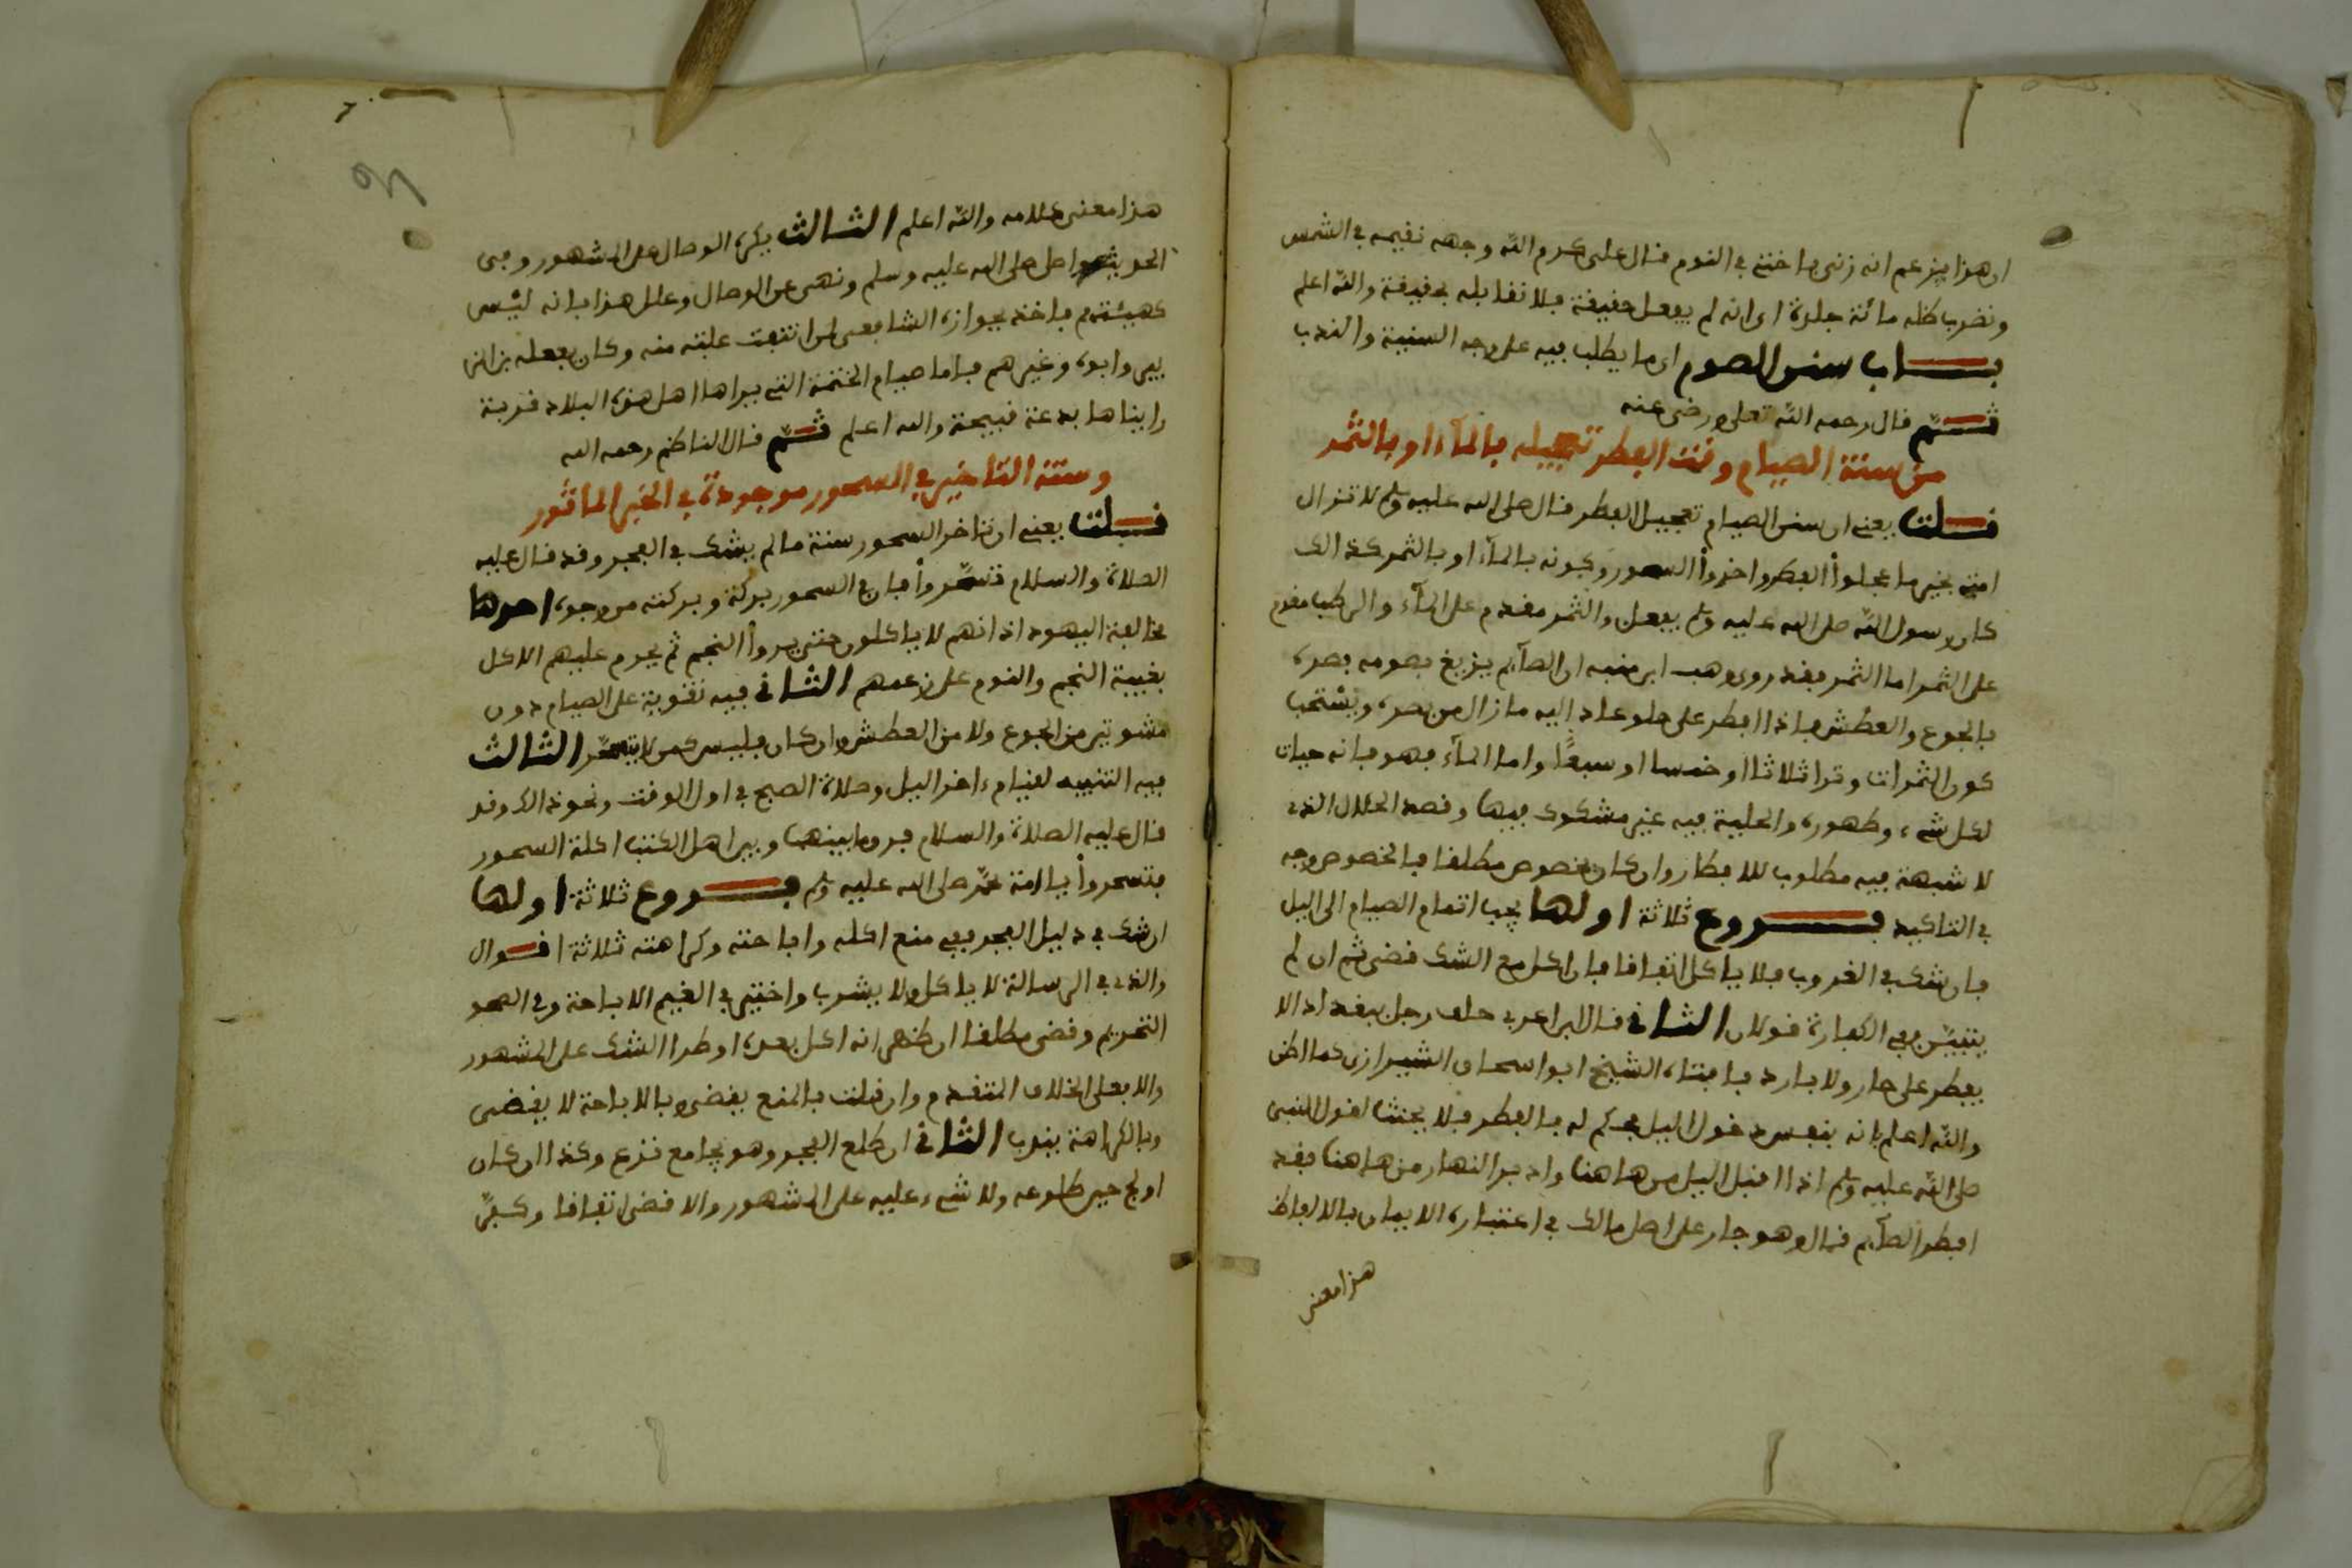 ان هذا يزعم انه زنى باختي في النوم فقال علي كرم الله وجهه نقيمه في الشمس
ونضرب ظله مائة جلدة اي انه لم يفعل حقيقة فلا نقابله بحقيقة والله اعلم
باب سنن الصوم اي ما يطلب فيه على وجه السنية والندب
ثم قال رحمه الله تعلى ورضي عنه
من سنة الصيام وقت الفطر تعجيله بالمآء او بالتمر
قلت يعني ان سنن الصيام تعجيل الفطر قال صلى الله عليه وسلم لا تزال
امتي بخير ما عجلوا الفطر واخروا السحور وكونه بالمآء او بالتمر كذالك
كان رسول الله صلى الله عليه وسلم يفعل والتمر مقدم على المآء والرطب مقدم
على التمر اما التمر فقد روى وهب ابن منبه ان الصآيم يزيغ بصومه بصره
بالجوع والعطش فاذا افطر على حلو عاد اليه ما زال من بصره ويستحب
كون التمرات وترا ثلاثا او خمسا او سبعا واما المآء فهو فانه حيات
لكل شيء وطهوره والحلية فيه غير مشكوك فيها وقصد الحلال الذي
لا شبهة فيه مطلوب للافطار وان كان بخصوص مطلقا فبالخصوص وجه
في التاكيد فروع ثلاثة اولها يجب اتمام الصيام الى اليل
فان شك في الغروب فلا ياكل اتفاقا فان اكل مع الشك قضى ثم ان لم
يتبين ففي الكفارة قولان الثاني قال ابن العربي حلف رجل ببغداد الا
يفطر على حار ولا بارد فافتاه الشيخ ابو اسحاق الشيرازي كما اظن
والله اعلم بانه بنفس دخول اليل يحكم له بالفطر فلا يحنث لقول النبي
صلى الله عليه وسلم اذا اقبل اليل من هاهنا وادبر النهار من هاهنا فقد
افطر الصآيم قال وهو جار على اصل مالك في اعتباره الايمان بالالفاظ
هذا معنى
هذا معنى كلامه والله اعلم الثالث يكره الوصال على المشهور وفي
الحديث واصل صلى الله عليه وسلم ونهى عن الوصال وعلل هذا بانه ليس
كهيئتهم فاخذ بجوازه الشافعي لمن انتفت علته منه وكان يفعله بن الز
بير وابوه وغيرهم فاما صيام الختمة التي يراها اهل هذه البلاد قربة
رايناها بدعة قبيحة والله اعلم ثم قال الناظم رحمه الله
وسنة التاخير في السحور موجودة في الخبر الماثور
قلت يعني ان تاخر السحور سنة ما لم يشك في الفجر وقد قال عليه
الصلاة والسلام تسحروا فان في السحور بركة وبركته من وجوه احدها
مخالفة اليهود اذ انهم لا ياكلون حتى يروا النجم ثم يحرم عليهم الاكل
بغيبة النجم والنوم على زعمهم الثاني فيه تقوية على الصيام دون
من الجوع ولا من العطش وان كان فليس كمن لا يتسحر الثالث
فيه التنبيه لقيام ءاخر اليل وصلاة الصبح في اول الوقت ونحو ذالك وقد
قال عليه الصلاة والسلام فرق ما بيننا وبين اهل الكتب اكلة السحور
فتسحروا يا امة محمد صلى الله عليه وسلم فروع ثلاثة اولها
ان شك في دليل الفجر ففي منع اكله واباحته وكراهته ثلاثة اقوال
والذي في الرسالة لا ياكل ولا يشرب واختير في الغيم الاباحة وفي الصحو
التحريم وقضى مطلقا ان ظهر انه اكل بعده او طرا الشك على المشهور
والا فعلى الخلاف المتقدم وان قلت بالمنع يقضي وبالاباحة لا يقضي
وبالكراهة يندب الثاني ان طلع الفجر وهو يجامع نزع وكذا ان كان
اولج حين طلوعه ولا شيء عليه على المشهور والا قضى اتفاقا وكفر